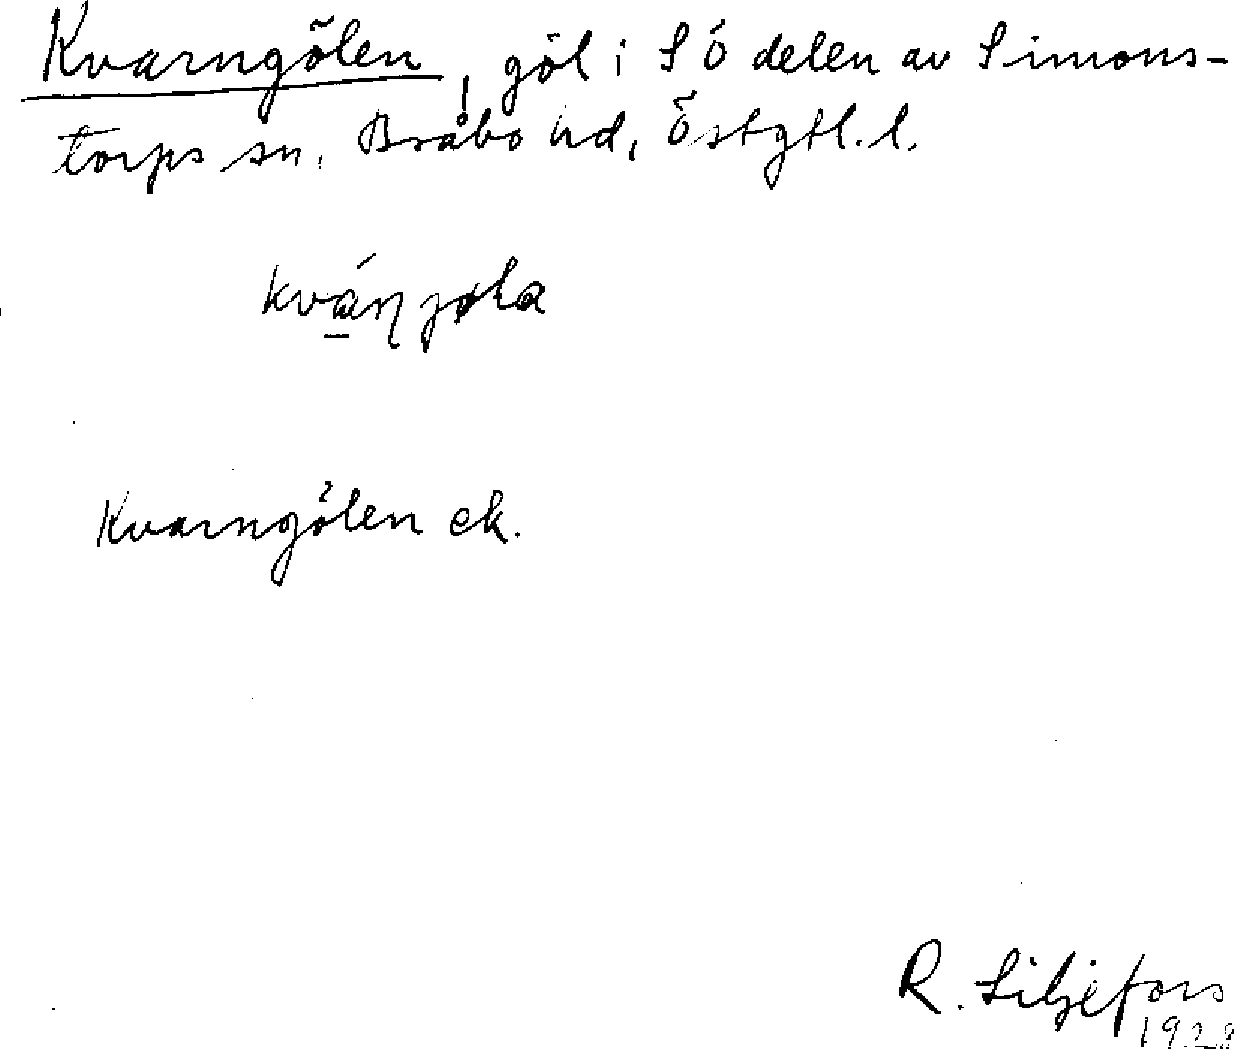 Kvarngölen, göl i S Ö delen av Simons-
torps sn, Bråbo hd, Östgtl. l.
kvánjøla
Kvarngölen ek.
R. Liljefors
1928